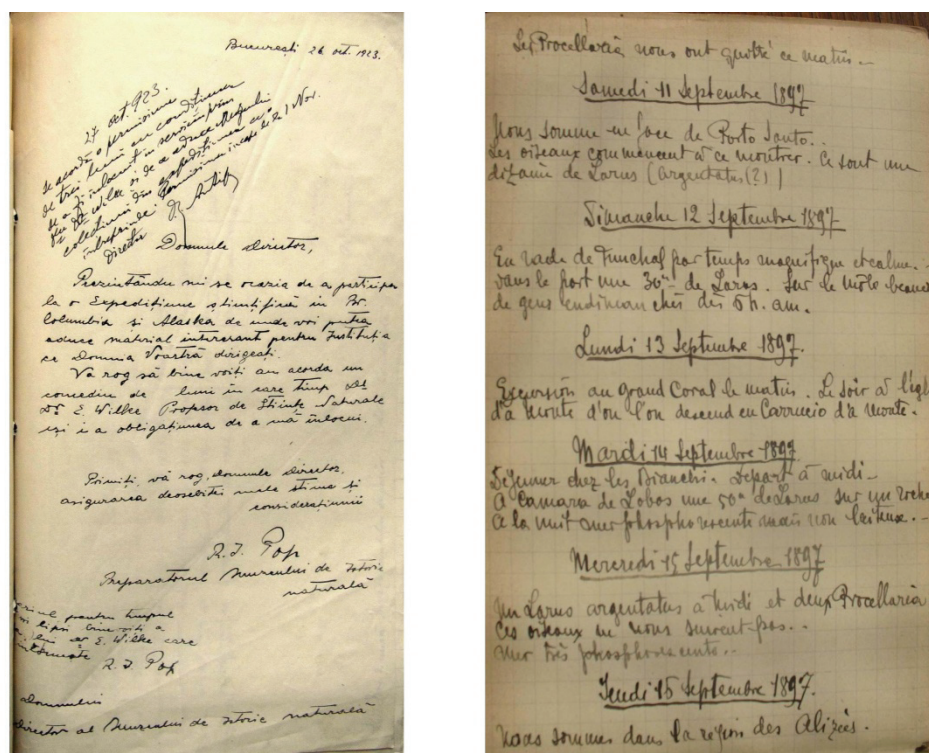 București 26 oct. 1923.
27 oct 923.
se acordă o permisiune
de trei luni cu condițiunea
de a fi înlocuit în serviciu prin
Dr Wilke și de a aduce Muzeului
colecțiuni din expedițiunea ce
întreprinde. Permisiunea începe de la 1 Nov.
Director
Domnule Director,
Prezintându mi se ocazia de a participa
la o Expedițiune științifică in Br.
Columbia si Alaska de unde voi putea
aduce material interesant pentru Instituția
ce Domnia Voastră dirigeați.
Vă rog să bine voiți au acorda un
concediu de luni in care timp Dl
Dr E. Wilke Profesor de Științe Naturale
iși i a obligațiunea de a mă înlocui.
Primiți, vă rog, Domnule Director,
asigurarea deosebitei mele stime și
considerațiuni
R. I. Pop
Preparatorul Muzeului de Istorie
naturală
pentru timpul
lipsi bine voiți a
lui Dr E. Wilke care
R. I. Pop
Domnului
Director al Muzeului de Istorie naturală
Les Procellaria nous ont quitté ce matin.-
Samedi 11 Septembre 1897
Nous somme en face de Porto Santo..
Les oiseaux commencent à ce montrer. Ce sont une
dizaine de Larus (argentatus(?))
Dimanche 12 Septembre 1897
En rade de Funchal par temps magnifique et calme.-
dans le port une 30ne de Larus. Sur le môle beauc
de gens endimanchés dès 6h. am.
Lundi 13 Septembre 1897.
Excursion au Grand Coral le matin. Le soir à l'égl
d'a Monte d'ou l'on descend en Carrucio d'a Monte.
Mardi 14 Septembre 1897
Déjeuner chez les Bianchi. Depart à midi-
A Camara de Lobos une 50ne de Larus sur un roche
A la nuit mer phosphorescente mais non laiteux.-
Mercredi 15 Septembre 1897
Un Larus argentatus à midi et deux Procellaria
Ces oiseaux ne nous suivent pas..
Mer très phosphorescente..
Jeudi 15 Septembre 1897.
Nous sommes dans la région des Alizées.